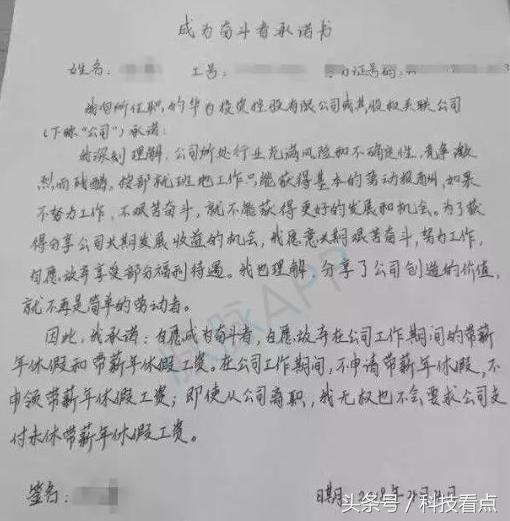 成为奋斗者承诺书
姓名: 工号: 证号码:
我向所任职的华为投资控股有限公司或其股权关联公司
(下称“公司”)承诺:
我深刻理解,公司所处行业充满风险和不确定性,竞争激
烈而残酷,按部就班地工作只能获得基本的劳动报酬,如果
不努力工作,不艰苦奋斗,就不能获得更好的发展和机会。为了获
得分享公司长期发展收益的机会,我愿意长期艰苦奋斗,努力工作,
自愿放弃享受部分福利待遇。我也理解,分享了公司创造的价值,
就不再是简单的劳动者。
因此,我承诺:自愿成为奋斗者,自愿放弃在公司工作期间的带薪
年休假和带薪年休假工资。在公司工作期间,不申请带薪年休假,不
申领带薪年休假工资;即使从公司离职,我无权也不会要求公司支
付未休带薪年休假工资。
签名: 日期:
脉脉APP
头条号/科技看点